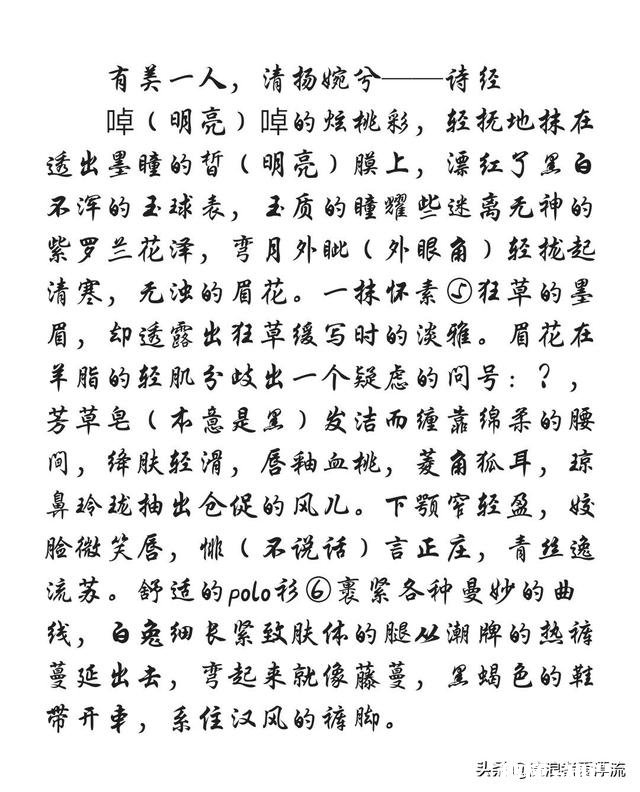 有美一人，清扬婉兮——诗经
啅（明亮）啅的炫桃彩，轻抚地抹在
透出墨瞳的皙（明亮）膜上，漂红了黑白
不浑的玉球表，玉质的瞳耀些迷离无神的
紫罗兰花泽，弯月外眦（外眼角）轻拢起
清寒，无浊的眉花。一抹怀素⑤狂草的墨
眉，却透露出狂草缓写时的淡雅。眉花在
羊脂的轻肌分歧出一个疑虑的问号：？，
芳草皂（本意是黑）发洁而缠靠绵柔的腰
间，绛肤轻滑，唇釉血桃，菱角狐耳，琼
鼻玲珑抽出仓促的风儿。下颚窄轻盈，姣
脸微笑唇，悱（不说话）言正庄，青丝逸
流苏。舒适的polo衫⑥裹紧各种曼妙的曲
线，白兔细长紧致肤体的腿从潮牌的热裤
蔓延出去，弯起来就像藤蔓，黑蝎色的鞋
带开车，系住汉风的裤脚。
头条